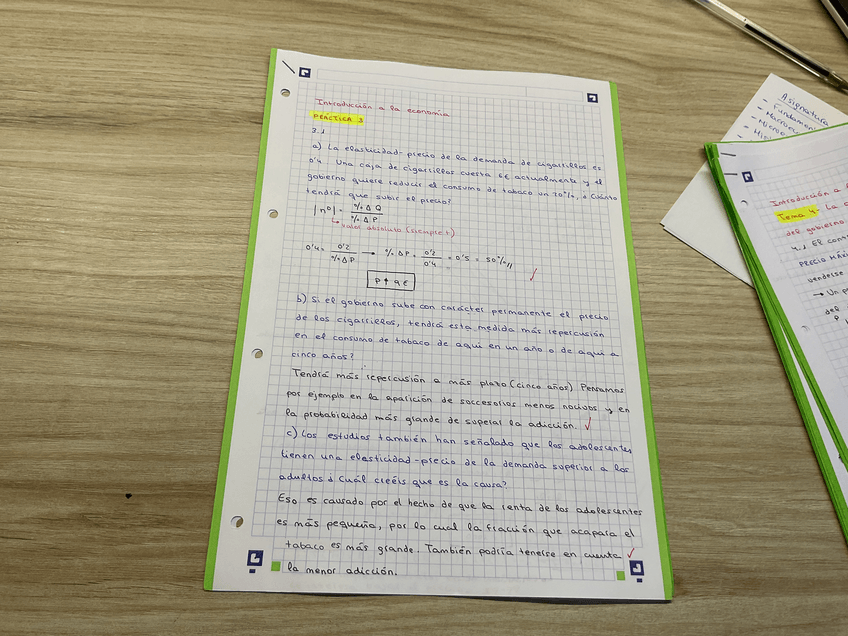 Introducción a la economía
PRÁCTICA 3
3.1
a) La elasticidad-precio de la demanda de cigarrillos es
0'4. Una caja de cigarrillos cuesta 6€ actualmente y el
gobierno quiere reducir el consumo de tabaco un 20%, ¿Cuánto
tendrá que subir el precio?
|nº| = %ΔQ / %ΔP
valor absoluto (siempre +)
0'4 = 0'2 / %ΔP → %ΔP = 0'2 / 0'4 = 0'5 = 50%
P ↑ 9€
b) Si el gobierno sube con carácter permanente el precio
de los cigarrillos, tendrá esta medida más repercusión
en el consumo de tabaco de aquí en un año o de aquí a
cinco años?
Tendrá más repercusión a más plazo (cinco años) Pensamos
por ejemplo en la aparición de succesorios menos nocivos y en
la probabilidad más grande de superar la adicción.
c) Los estudios también han señalado que los adolescentes
tienen una elasticidad-precio de la demanda superior a los
adultos ¿Cuál creéis que es la causa?
Eso es causado por el hecho de que la renta de los adolescentes
es más pequeña, por lo cual la fracción que acapara el
tabaco es más grande. También podría tenerse en cuenta
la menor adicción.
Asignatura
- Fundamen
- Macroec
- Microe
Introducción a l
Tema 4- La o
del gobierno
4.1 El cont
PRECIO MÁXI
venderse
→ Un p
del